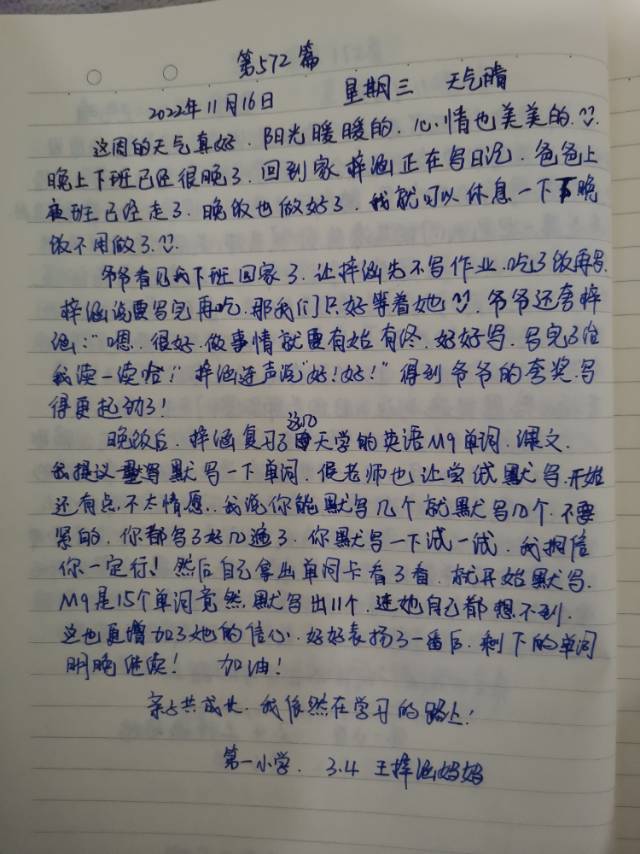 第572篇
2022年11月16日 星期三 天气晴
这周的天气真好，阳光暖暖的，心情也美美的。
晚上下班已经很晚了，回到家梓涵正在写日记，爸爸上
夜班已经走了，晚饭也做好了，我就可以休息一下了晚
饭不用做了。
爷爷看见我下班回家了，让梓涵先不写作业，吃了饭再写。
梓涵说要写完再吃，那我们只好等着她，爷爷还夸梓
涵："嗯，很好，做事情就要有始有终，好好写，写完了给
我读一读哈！"梓涵连声说"好！好！"得到爷爷的夸奖，写
得更起劲了！
晚饭后，梓涵复习了这几天学的英语M9单词，课文，
我提议默写一下单词，侯老师也让尝试默写，开始
还有点不太情愿，我说你能默写几个就默写几个，不要
紧的，你都写了好几遍了，你默写一下试一试，我相信
你一定行！然后自己拿出单词卡看了看，就开始默写，
M9是15个单词竟然默写出11个，连她自己都想不到，
这也更增加了她的信心，好好表扬了一番后，剩下的单词
明晚继续！ 加油！
亲子共成长，我依然在学习的路上！
第一小学 3.4 王梓涵妈妈